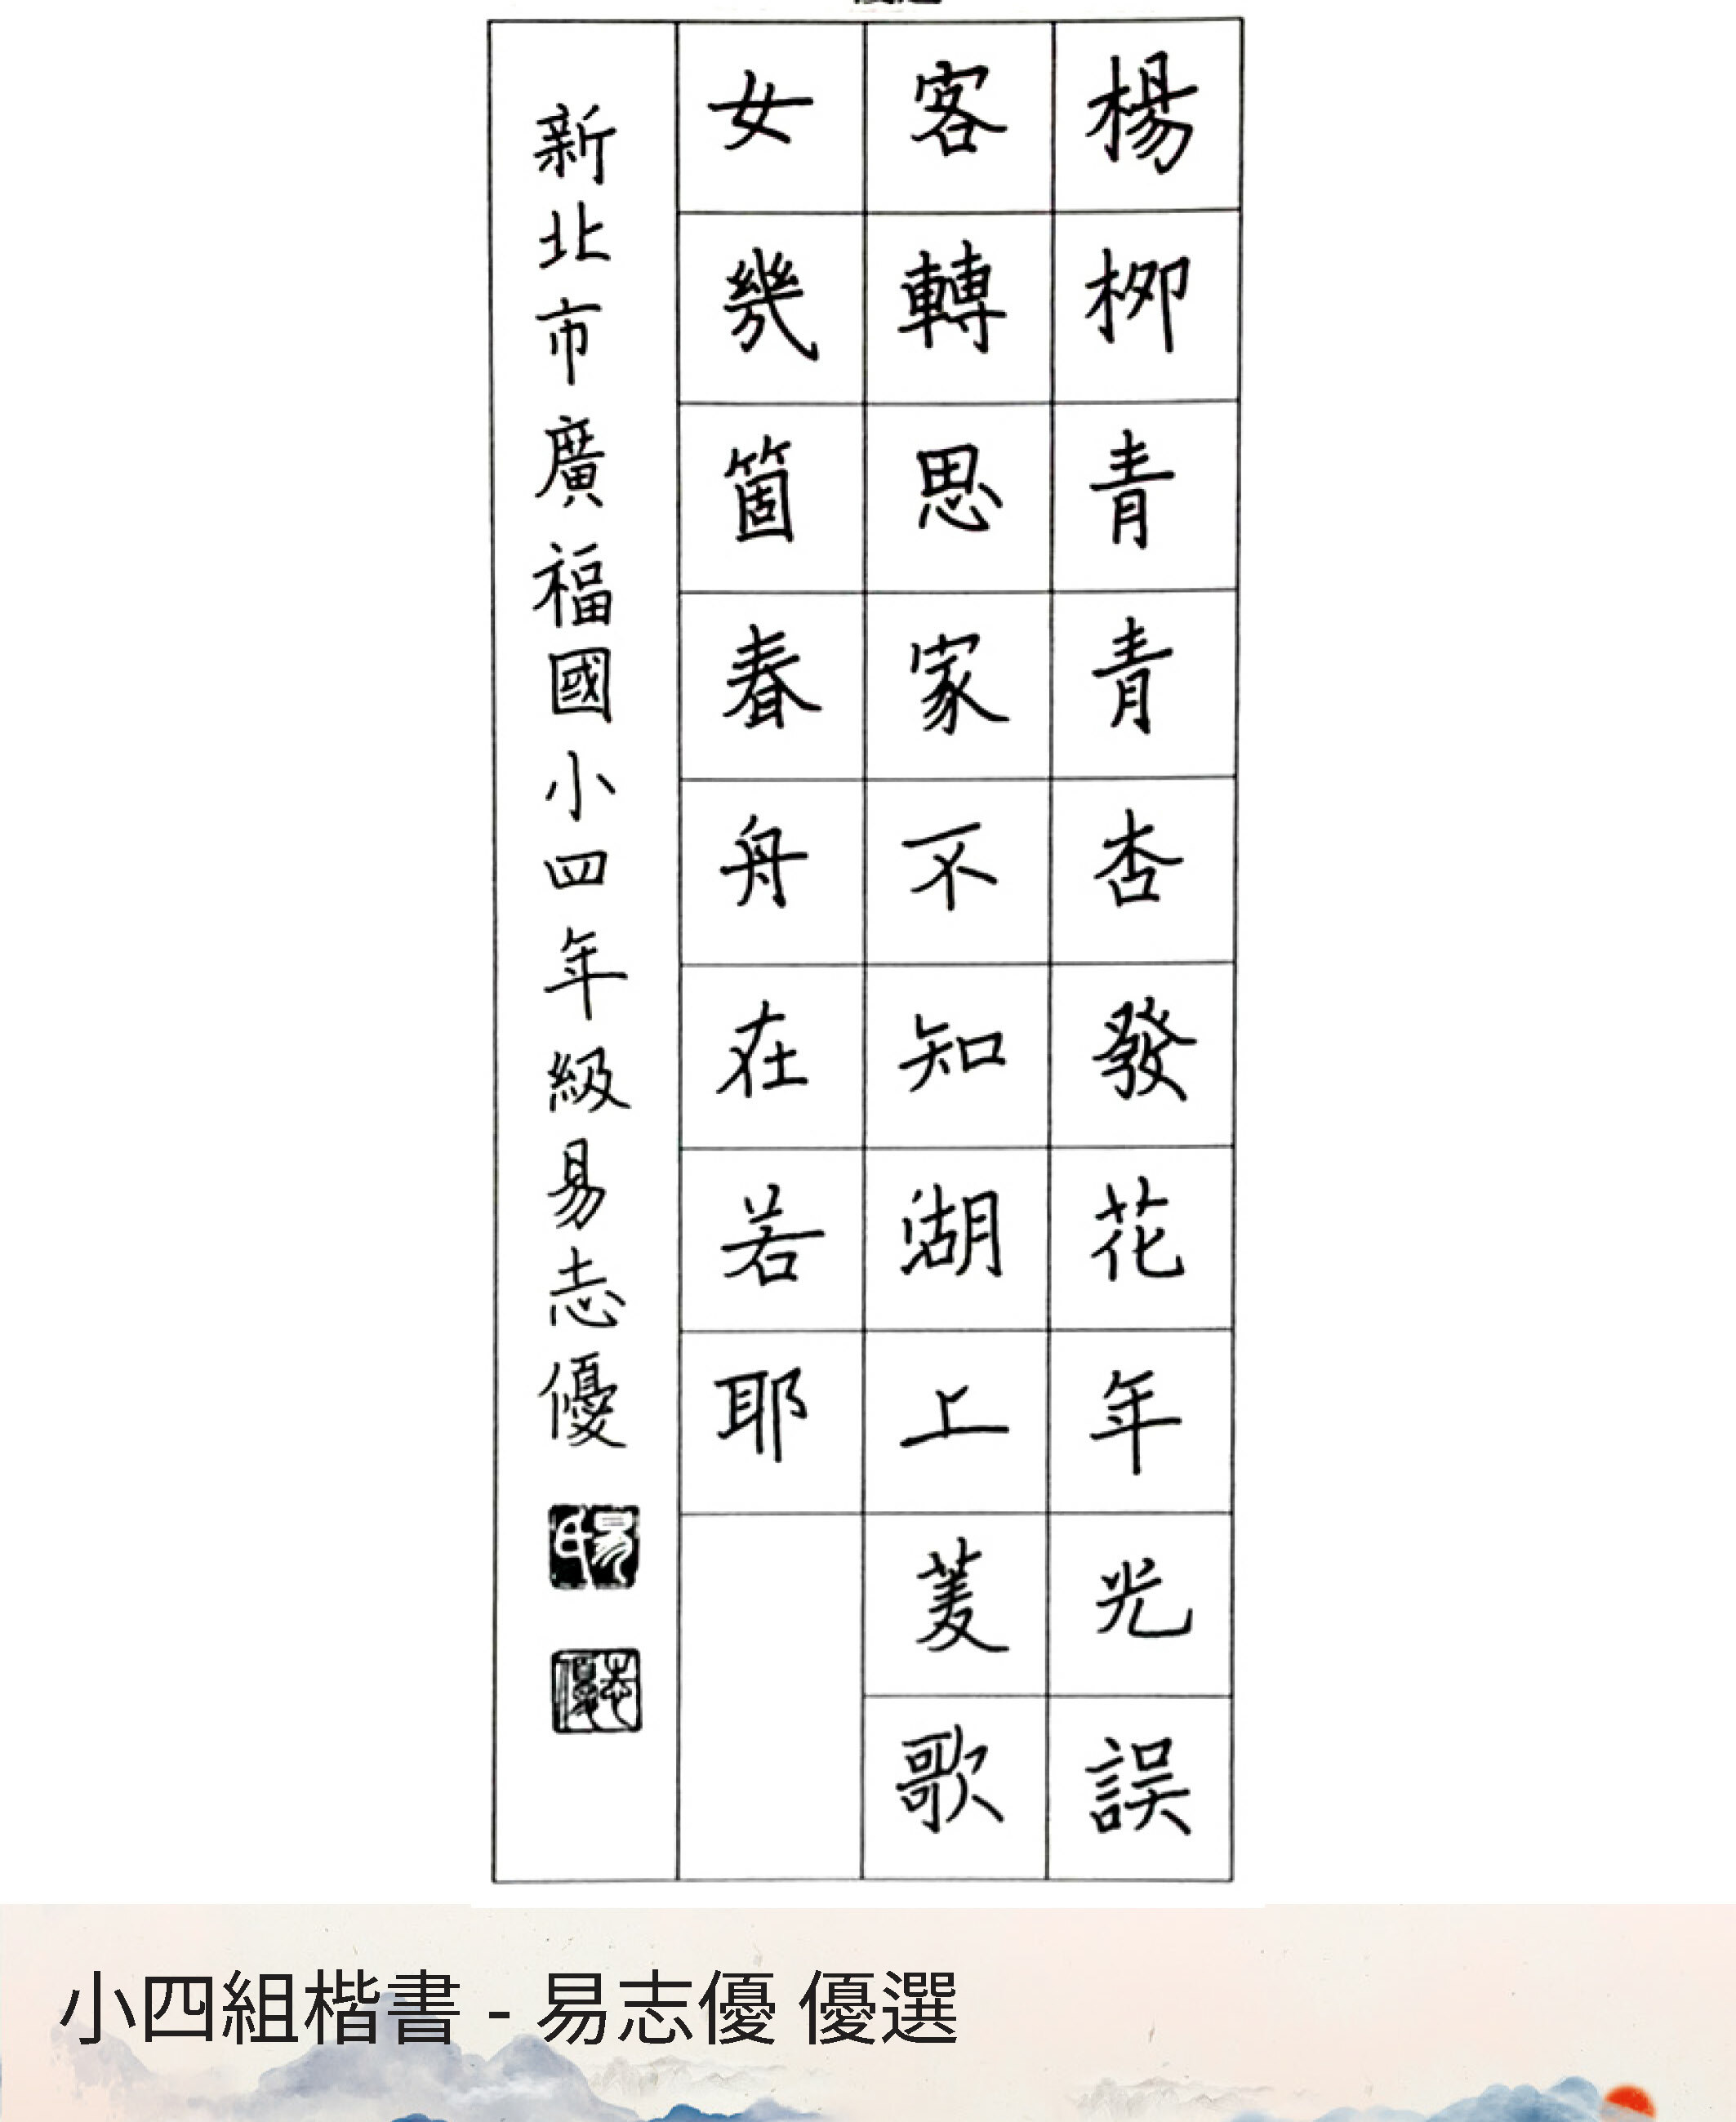 楊柳青青杏發花年光誤
客轉思家不知湖上菱歌
女幾箇春舟在若耶
新北市廣福國小四年級易志優
小四組楷書 - 易志優 優選